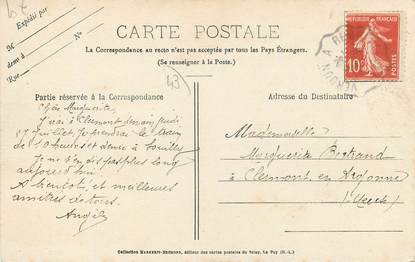 Expédié par
M
demeurant à
Rue N°
CARTE POSTALE
La Correspondance au recto n'est pas acceptée par tous les Pays Étrangers.
(Se renseigner à la Poste.)
43
10c
POSTES
Partie réservée à la Correspondance
Adresse du Destinataire
Chère Marguerite,
J'irai à Clermont demain jeudi
17 Juillet. Je prendrai le train
de 10 heures et demie à
Je ne t'en dis pas plus long
aujourd'hui.
A bientôt, et meilleures
amitiés de tous.
Angèle
Mademoiselle
Marguerite Bertrand
à Clermont en Argonne
(Meuse)
Collection MARGERIT-BREMOND, éditeur des cartes postales du Velay, Le Puy (H.-L.)